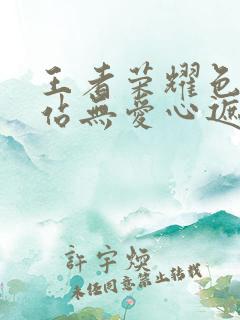 王者荣耀色
佔無愛心遮
許宇煥
未经同意禁止转载